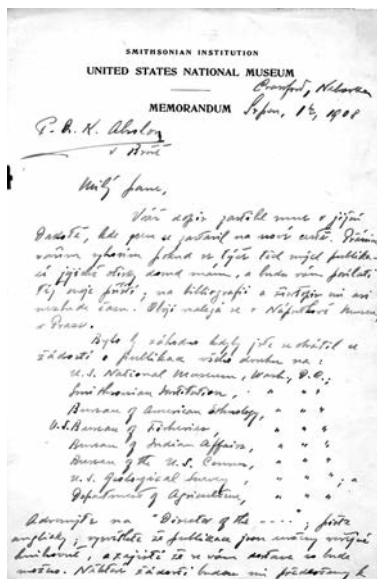 SMITHSONIAN INSTITUTION
UNITED STATES NATIONAL MUSEUM
Crawford, Nebraska
MEMORANDUM Srpen, 12, 1908
P. Dr. K. Absolon
v Brně
Milý pane,
Váš dopis zastihl mne v jižní
Dakotě, kde jsem se zastavil na nové cestě. Přáním
vašim vyhovím pokud se týče těd mých publika-
cí jejichž otisky doma mám, a budu vám posílati
též moje příští; na bibliografii a životopis mi ani
nezbude čas. Obojí nalézá se v Náprstkově Museu,
v Praze.
Bylo by záhodno kdyby jste se obrátil se
žádostí o publikace všeho druhu na:
U.S. National Museum, Wash., D.C.;
Smithsonian Institution, " " "
Bureau of American Ethnology, " " "
U.S. Bureau of Fisheries, " " "
Bureau of Indian Affairs, " " "
Bureau of the U.S. Census, " " "
U.S. Geological Survey, " " " ; a
Department of Agriculture, " " "
Adresujte na "Director of the ----; pište
anglicky, vysvětlete že publikace jsou určeny veřejné
knihovně, a zajistě že se vám dostane co bude
možno. Náklad žádosti budou mi předloženy k